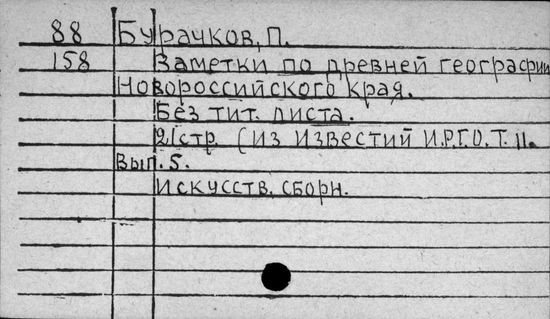 88 Бурачков, П.
158 Заметки по древней географии
Новороссийского края.
Без тит. листа.
21 стр. (Из Известий И.Р.Г.О. Т. 11.
Вып. 5.
Искусств. сборн.